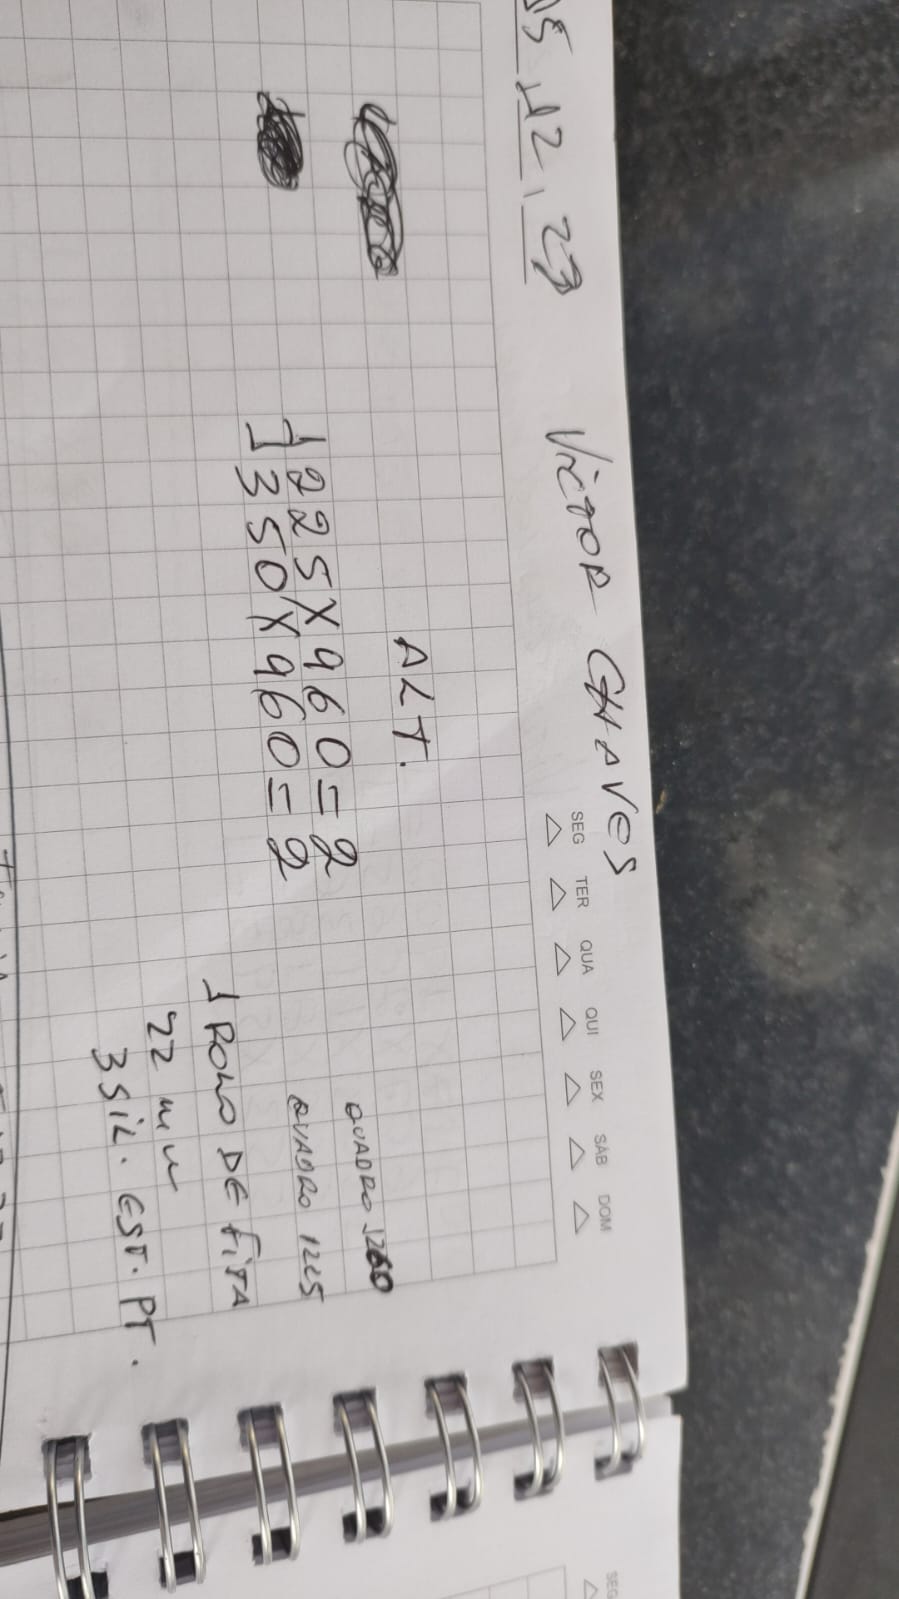 15 12 23 VICTOR CHAVES
SEG TER QUA QUI SEX SÁB DOM
ALT.
1225X960=2 QUADRO 1260
1350X960=2 QUADRO 1225
1 ROLO DE FITA
22 MM
3 SIL. EST. PT.
SEG